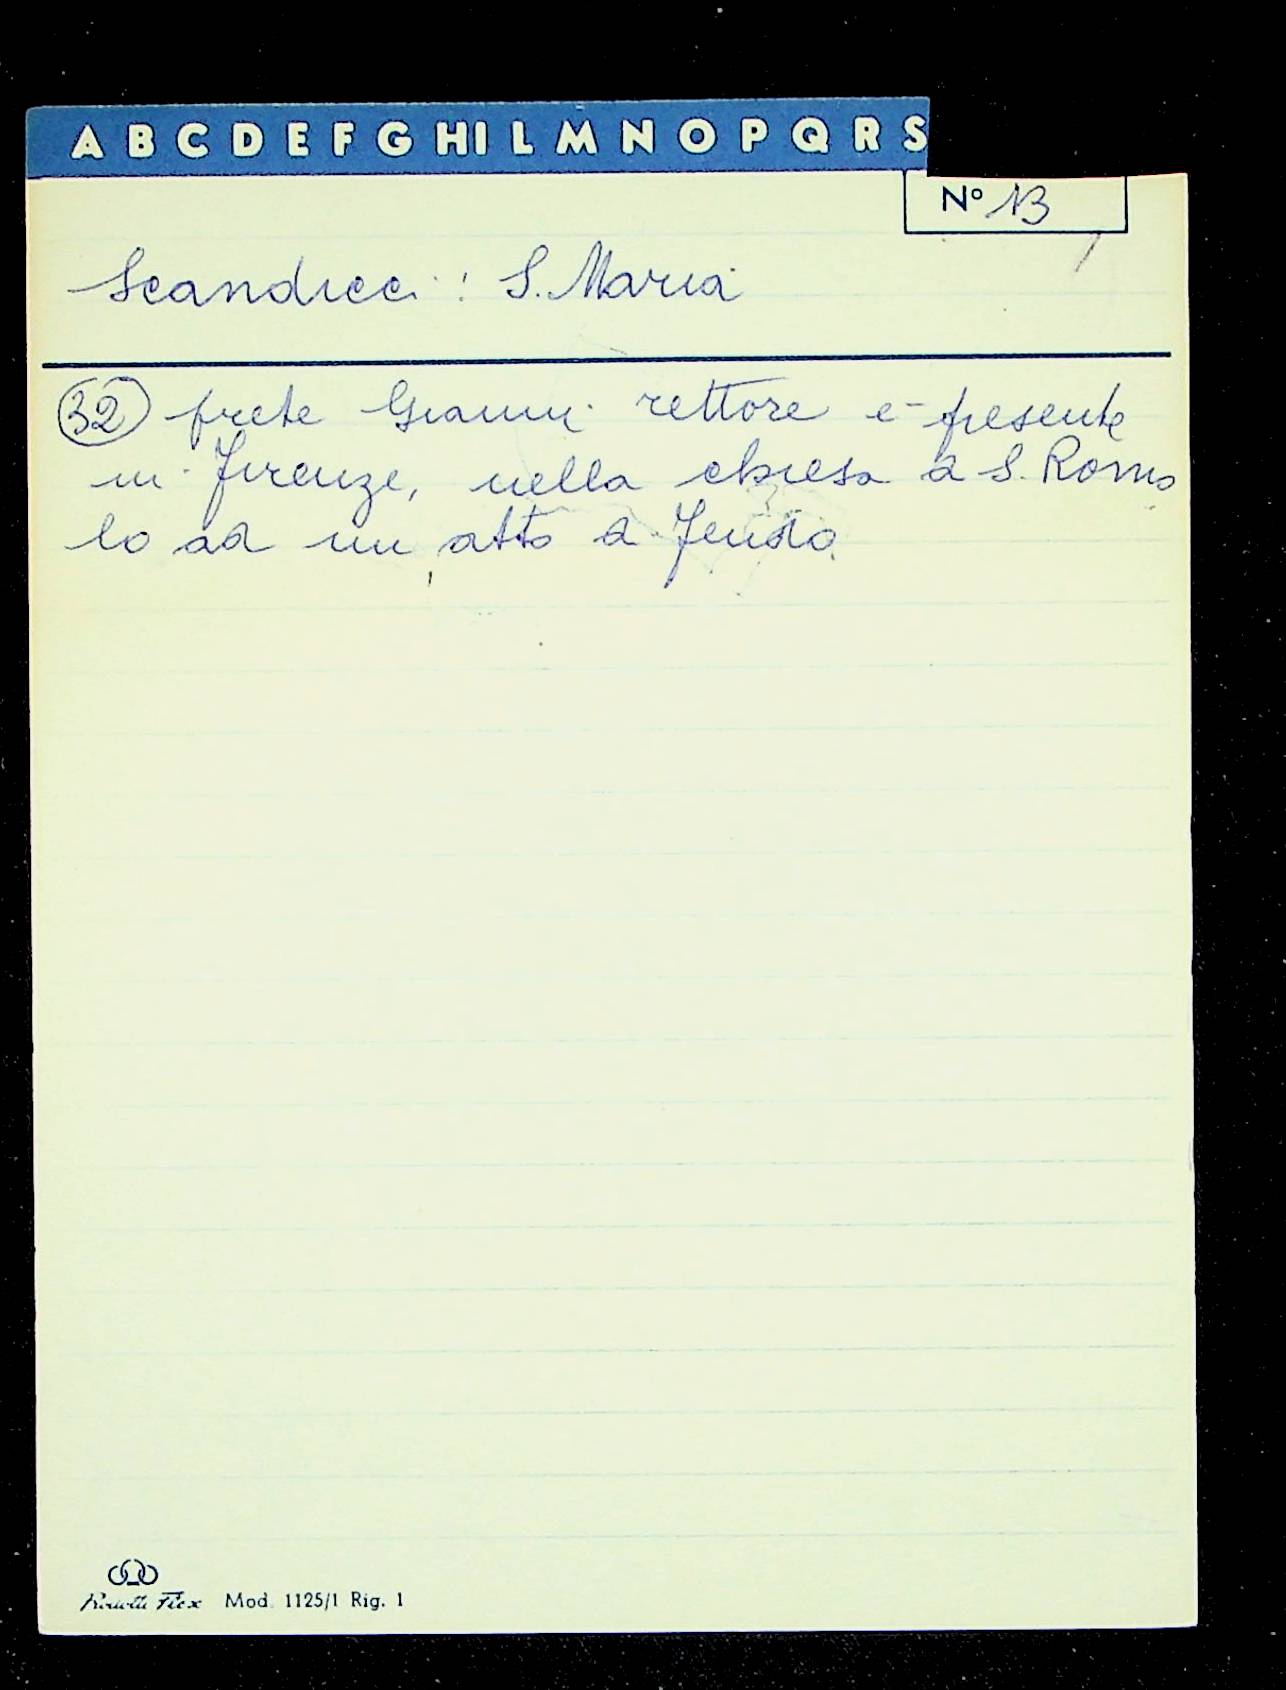 A B C D E F G HI L M N O P Q R S
N° 13
Scandicci : S. Maria
32 prete Gianni rettore è presente
in Firenze, nella chiesa di S. Romo
lo ad un atto di
Mod. 1125/1 Rig. 1